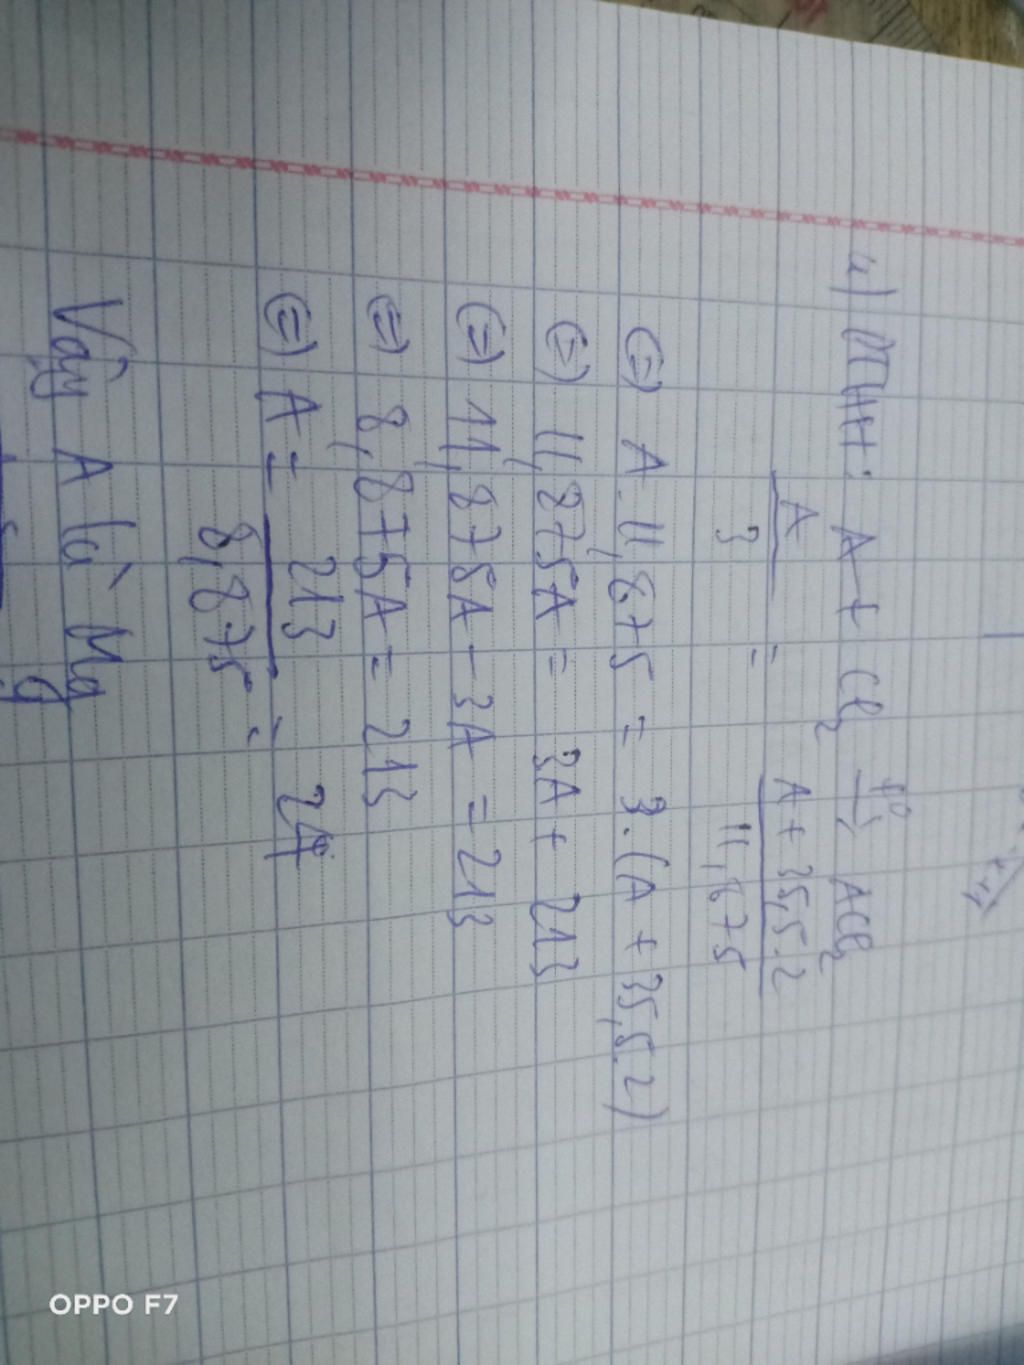 a) PTHH: A + Cl2 t° → ACl2
A/3 = A + 35,5.2/11,875
(=) A.11,875 = 3.(A + 35,5.2)
(=) 11,875A = 3A + 213
(=) 11,875A - 3A = 213
(=) 8,875A = 213
(=) A = 213/8,875 = 24
Vậy A là Mg
OPPO F7